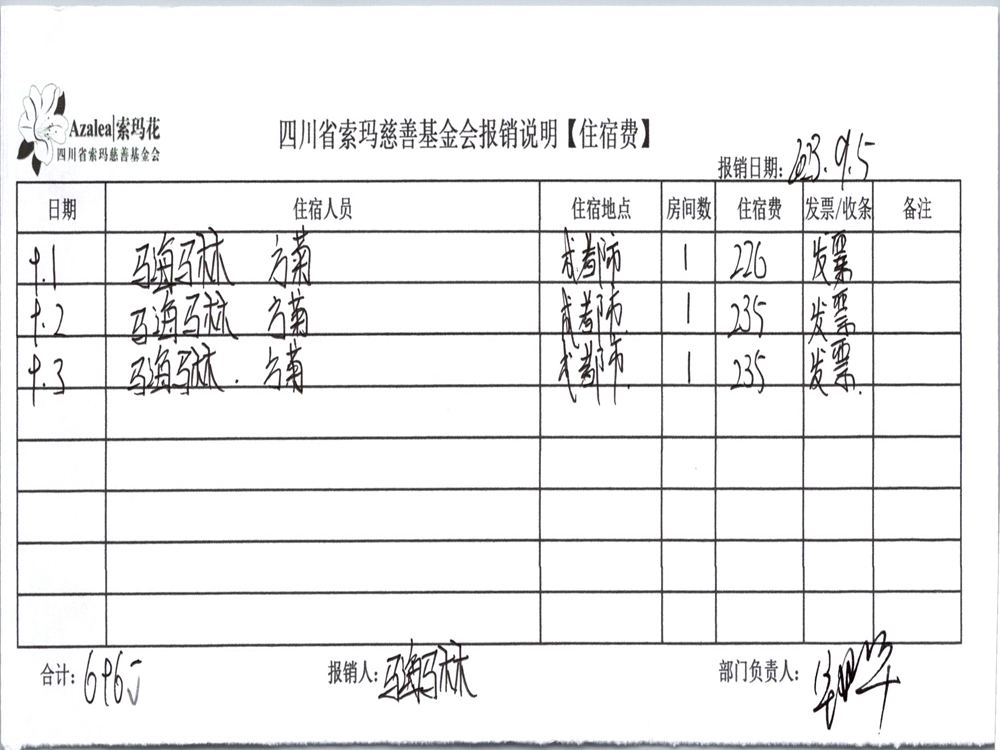 Azalea|索玛花
四川省索玛慈善基金会
四川省索玛慈善基金会报销说明【住宿费】
报销日期: 23.9.5
日期 住宿人员 住宿地点 房间数 住宿费 发票/收条 备注
9.1 马海马林 方菊 成都市 1 226 发票
9.2 马海马林 方菊 成都市. 1 235 发票
9.3 马海马林. 方菊 成都市. 1 235 发票.
合计: 696 报销人: 马海马林 部门负责人: